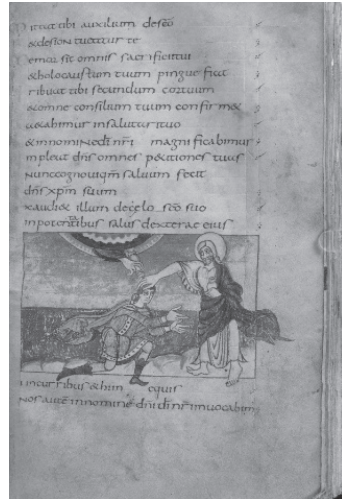 ittat tibi auxilium deseo
&desion tuoatur te
emor sit omnis sacrificii tui
&holocaustum tuum pingue fiat
ribuat tibi secundum cortuum
&omne consilium tuum confirm&
&abimur insalutari tuo
&innominedi nri magnificabimur
inpleat dns omnes p&itiones tuas
Nunc cognoui qm saluum fecit
dns xpm suum
xaudi& illum decelo sco suo
inpotentibus salus dexterae eius
incurribus &hii in equis
Nos aute innomine dni di nri inuocabim